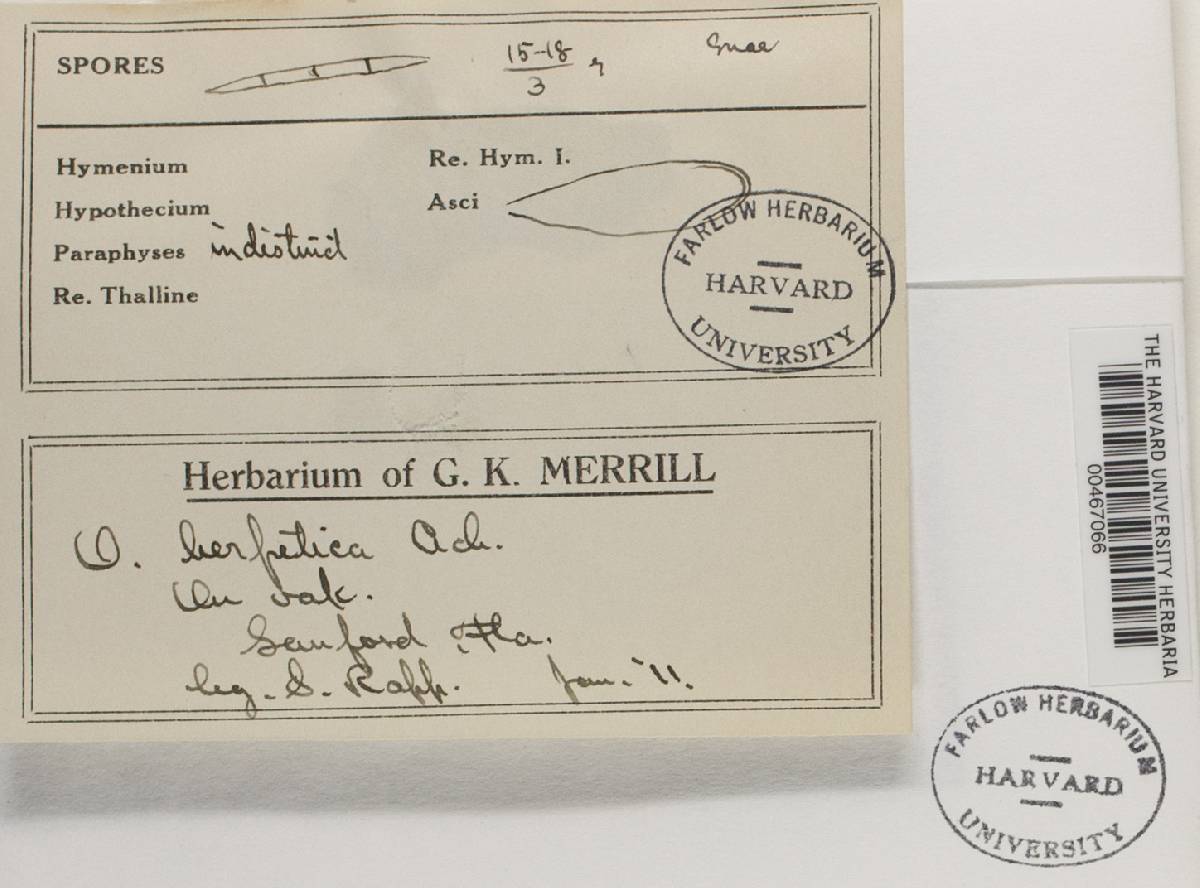 SPORES 15-18
3
Hymenium Re. Hym. I.
Hypothecium Asci
Paraphyses indistinct
Re. Thalline
FARLOW HERBARIUM
HARVARD
UNIVERSITY
Herbarium of G. K. MERRILL
O. herpetica Ach.
On oak.
Sanford Fla.
leg. S. Rapp. Jan. '11.
THE HARVARD UNIVERSITY HERBARIA
00467066
FARLOW HERBARIUM
HARVARD
UNIVERSITY